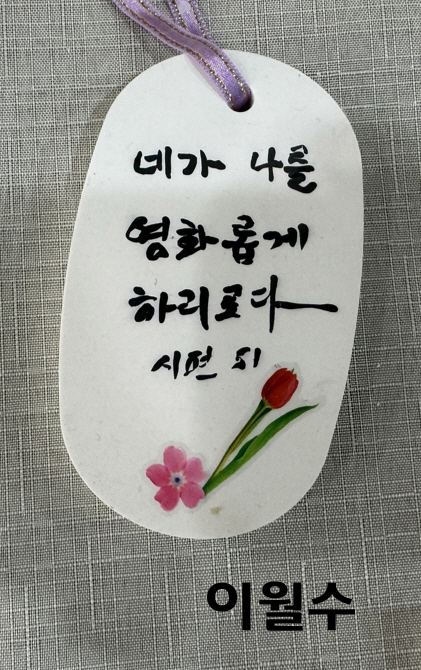 네가 나를
영화롭게
하리로다
시편 51
이월수